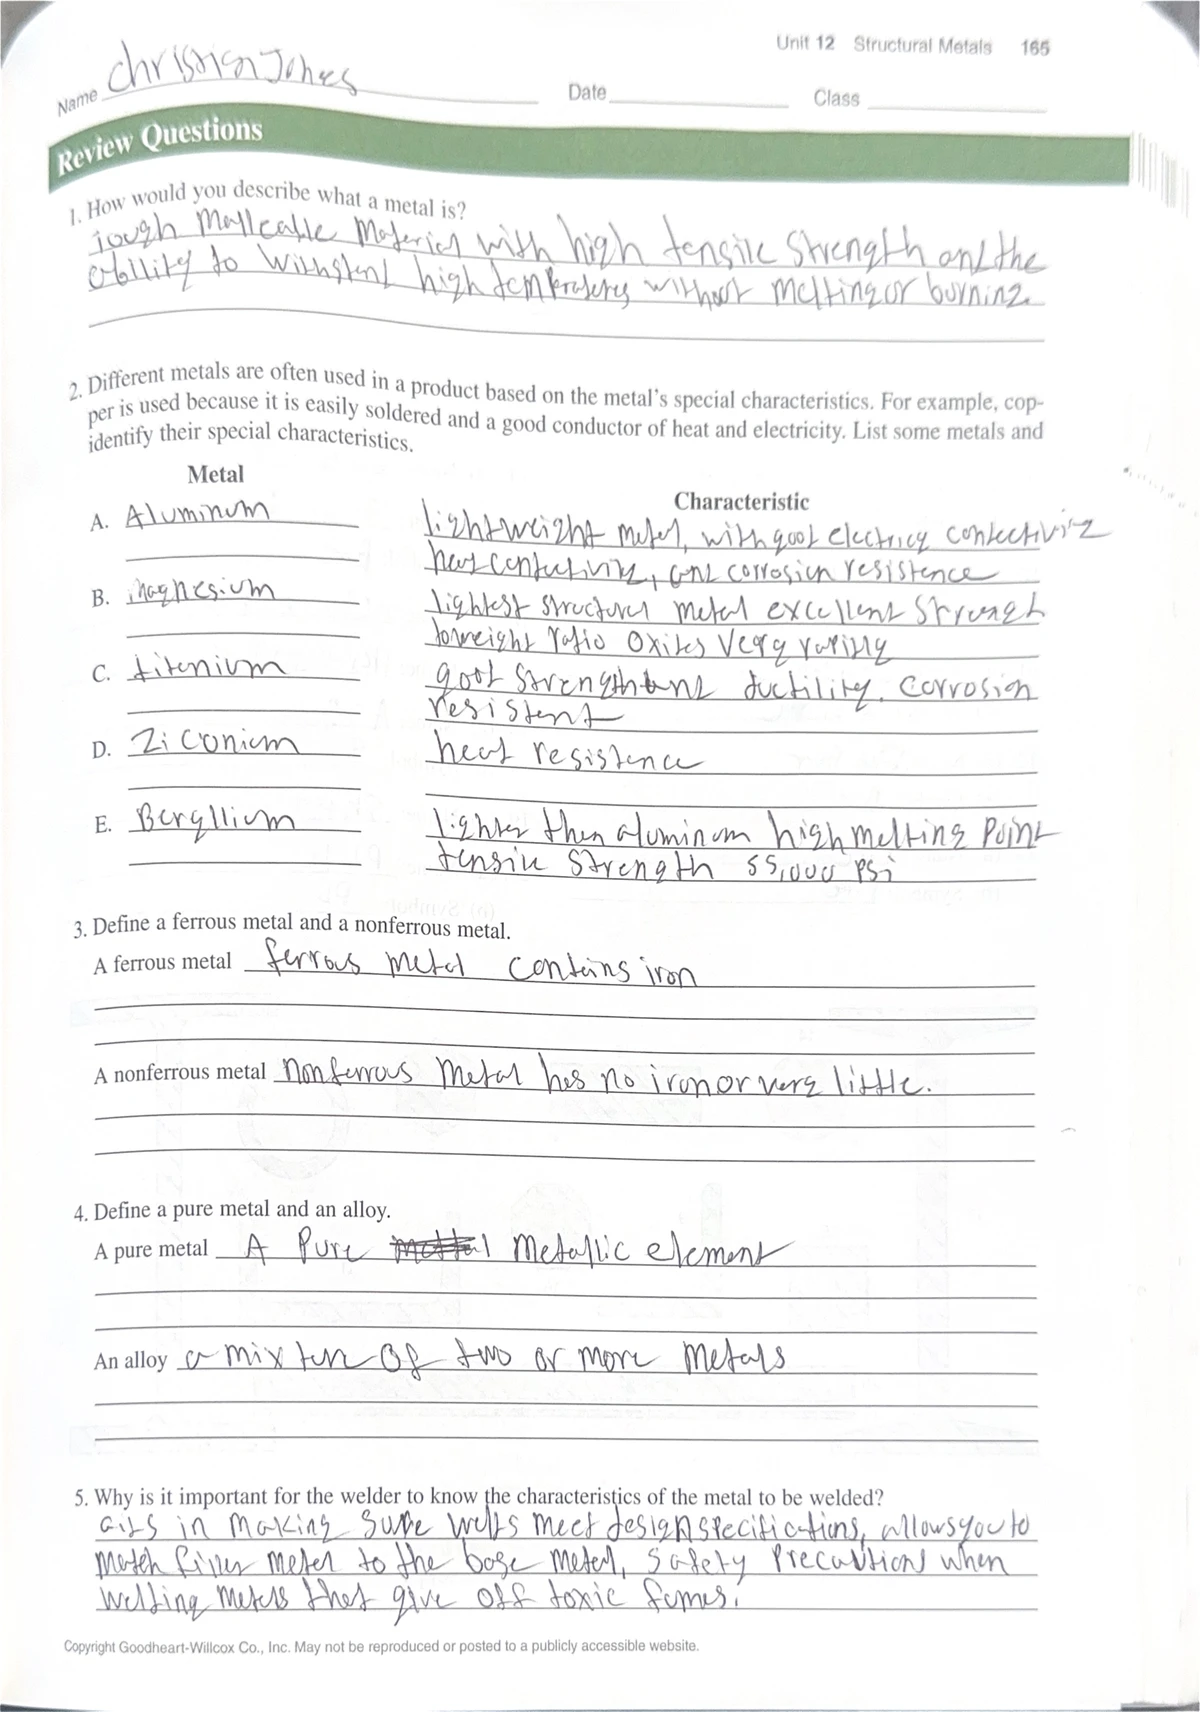 Unit 12 Structural Metals 165
Name Christian Jones Date Class
Review Questions
1. How would you describe what a metal is?
Tough Malleable Material with high tensile Strength and the
ability to withstand high temperatures without melting or burning.
2. Different metals are often used in a product based on the metal's special characteristics. For example, cop-
per is used because it is easily soldered and a good conductor of heat and electricity. List some metals and
identify their special characteristics.
Metal
Characteristic
A. Aluminum lightweight metal, with good electricy conductivity
heat conductivity, and corrosion resistence
B. magnesium lightest structural metal excellent Strength
to weight ratio Oxites Very rapidly
C. titenium good Strength and ductility. Corrosion
resistent
D. Ziconium heat resistence
E. Beryllium lighter then aluminum high melting Point
tensile Strength 55,000 PSi
3. Define a ferrous metal and a nonferrous metal.
A ferrous metal ferrous metal contains iron
A nonferrous metal nonferrous metal has no iron or very little.
4. Define a pure metal and an alloy.
A pure metal A Pure Metallic element
An alloy a mixture Of two or more Metals
5. Why is it important for the welder to know the characteristics of the metal to be welded?
aids in making sure welds meet design specifications, allows you to
match filler metal to the base metal, Safety Precautions when
welding metals that give off toxic fumes.
Copyright Goodheart-Willcox Co., Inc. May not be reproduced or posted to a publicly accessible website.